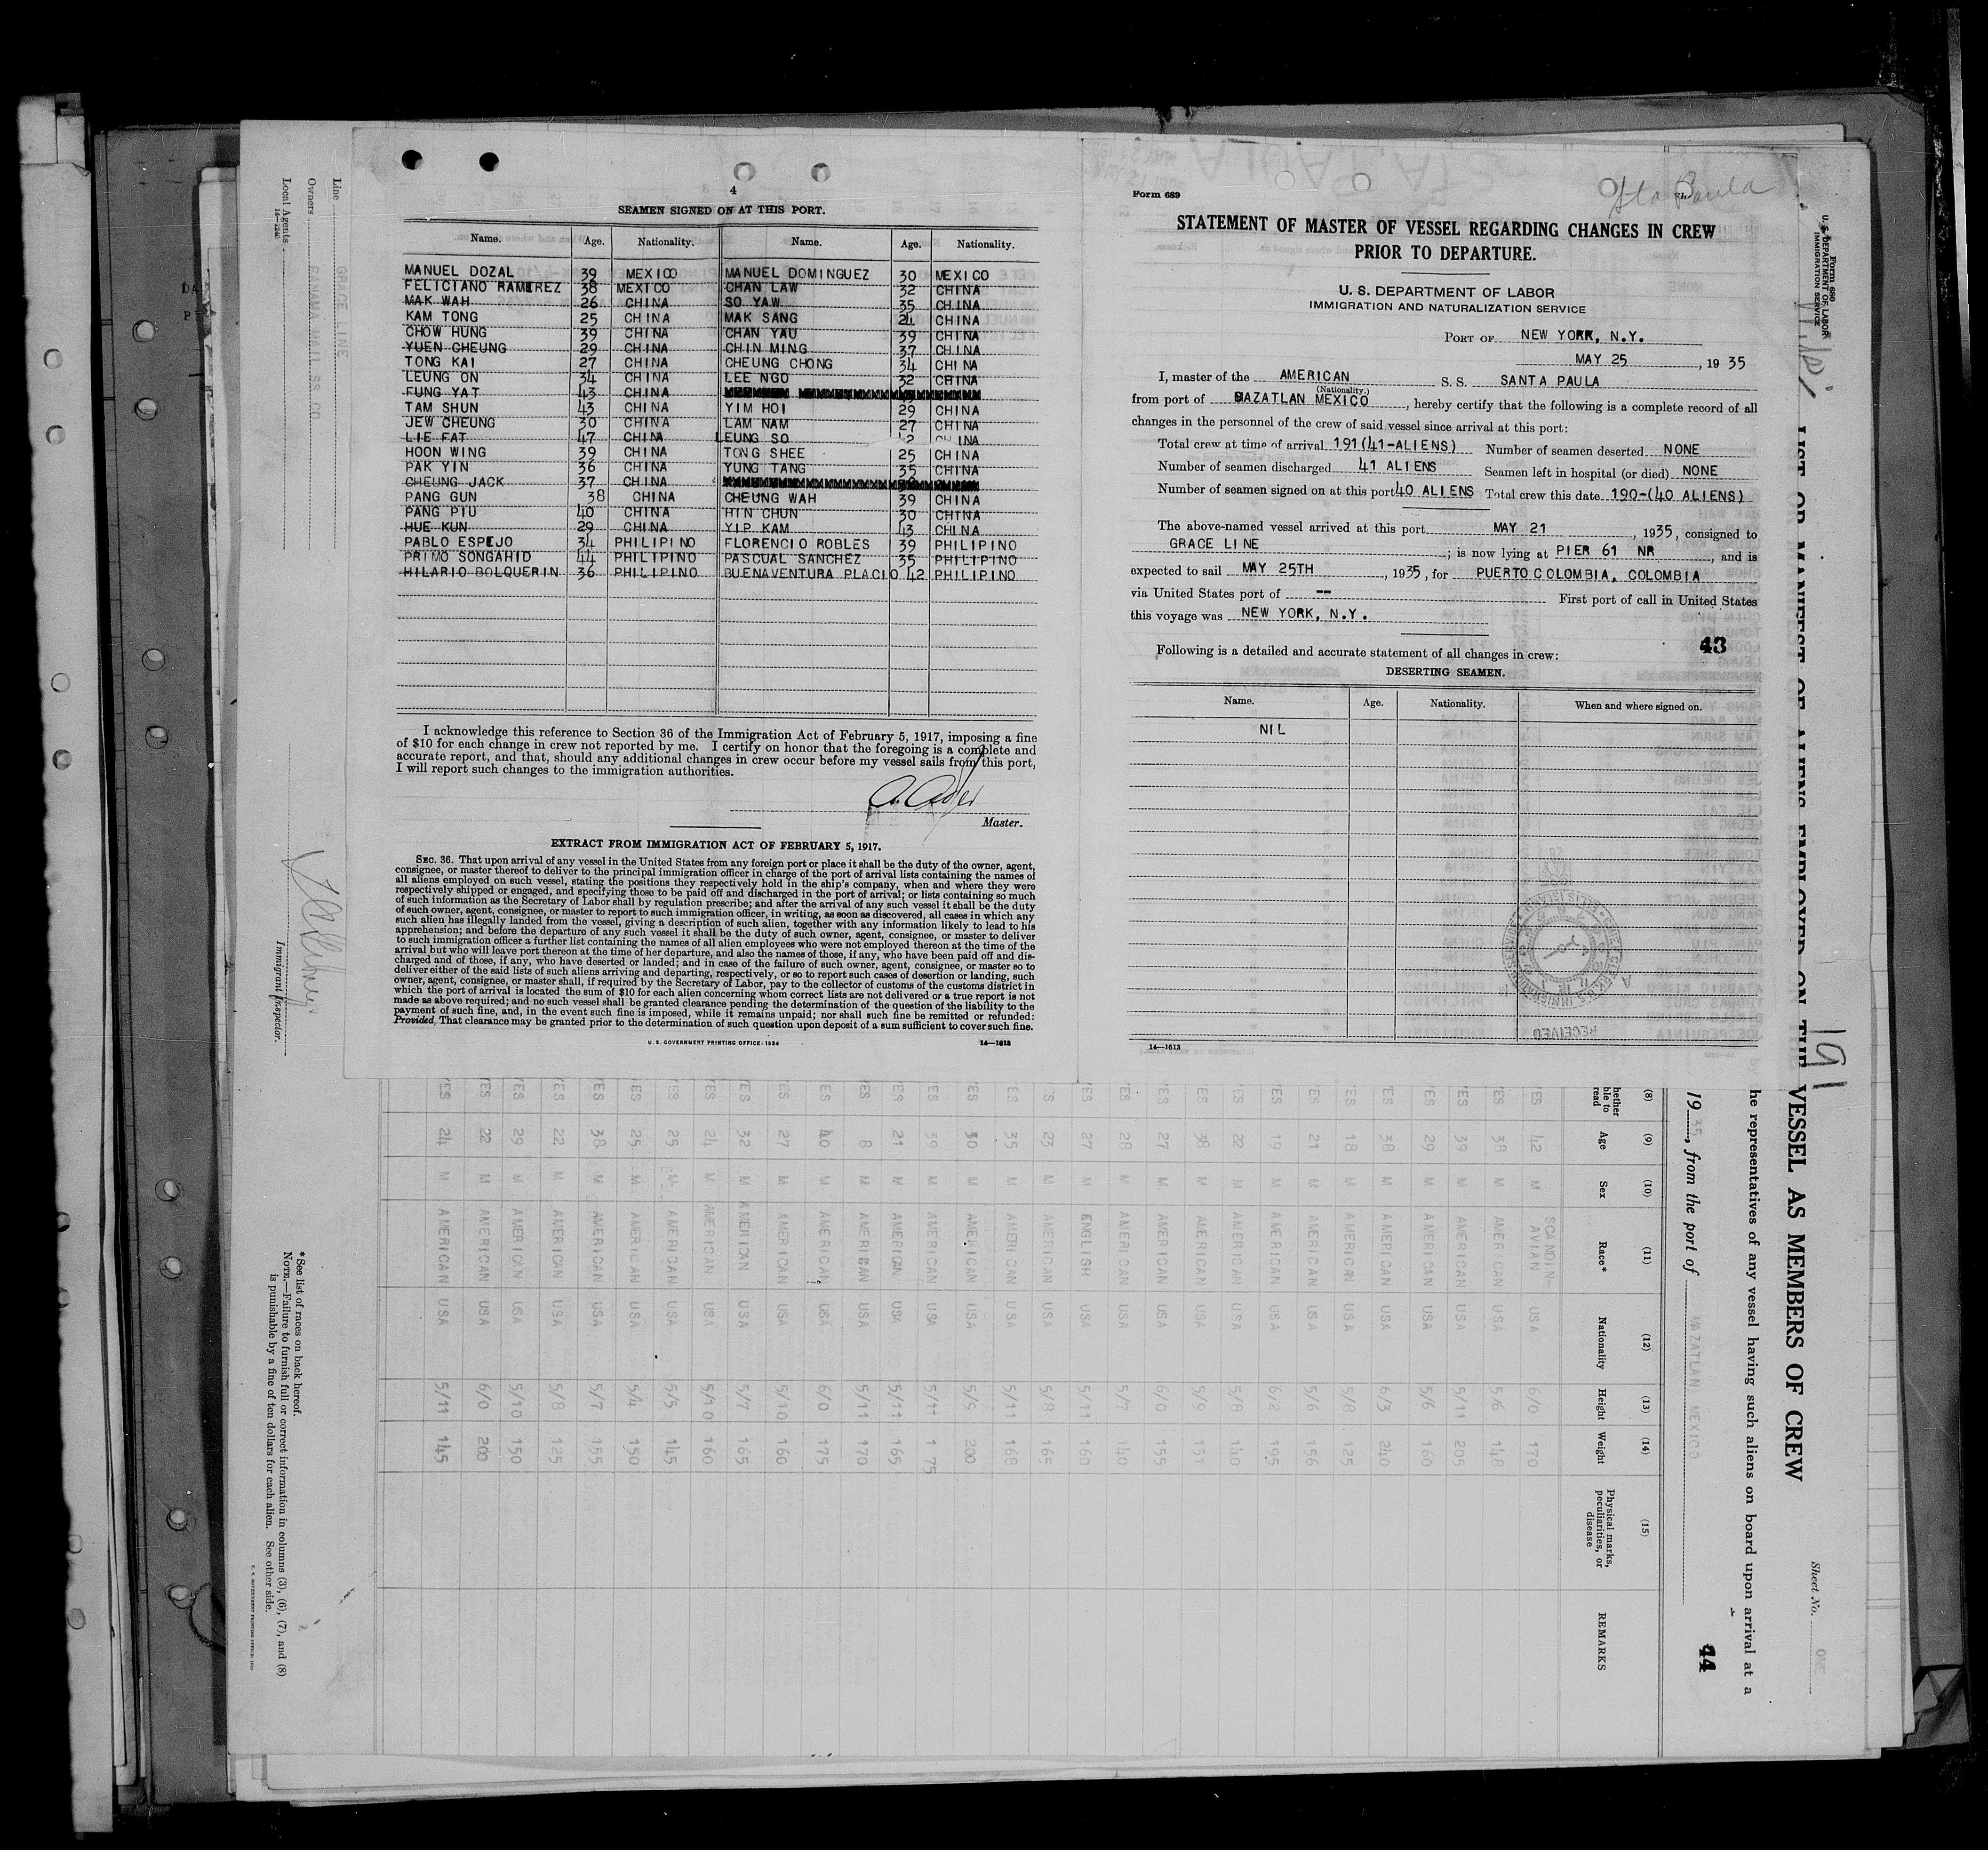 4
SEAMEN SIGNED ON AT THIS PORT.
Name. Age. Nationality. Name. Age. Nationality.
MANUEL DOZAL 39 MEXICO MANUEL DOMINGUEZ 30 MEXICO
FELICIANO RAMIREZ 38 MEXICO CHAN LAW 32 CHINA
MAK WAH 26 CHINA SO YAW 35 CHINA
KAM TONG 25 CHINA MAK SANG 24 CHINA
CHOW HUNG 39 CHINA CHAN YAU 39 CHINA
YUEN CHEUNG 29 CHINA CHIN MING 37 CHINA
TONG KAI 27 CHINA CHEUNG CHONG 34 CHINA
LEUNG ON 34 CHINA LEE NGO 32 CHINA
FUNG YAT 43 CHINA
TAM SHUN 43 CHINA YIM HOI 29 CHINA
JEW CHEUNG 30 CHINA LAM NAM 27 CHINA
LIE FAT 47 CHINA LEUNG SO 42 CHINA
HOON WING 39 CHINA TONG SHEE 25 CHINA
PAK YIN 36 CHINA YUNG TANG 35 CHINA
CHEUNG JACK 37 CHINA
PANG GUN 38 CHINA CHEUNG WAH 39 CHINA
PANG PIU 40 CHINA HIN CHUN 30 CHINA
HUE KUN 29 CHINA YIP KAM 43 CHINA
PABLO ESPEJO 34 PHILIPINO FLORENCIO ROBLES 39 PHILIPINO
PRIMO SONGAHID 44 PHILIPINO PASCUAL SANCHEZ 35 PHILIPINO
HILARIO BOLQUERIN 36 PHILIPINO BUENAVENTURA PLACIO 42 PHILIPINO
I acknowledge this reference to Section 36 of the Immigration Act of February 5, 1917, imposing a fine
of $10 for each change in crew not reported by me. I certify on honor that the foregoing is a complete and
accurate report, and that, should any additional changes in crew occur before my vessel sails from this port,
I will report such changes to the immigration authorities.
Master.
EXTRACT FROM IMMIGRATION ACT OF FEBRUARY 5, 1917.
SEC. 36. That upon arrival of any vessel in the United States from any foreign port or place it shall be the duty of the owner, agent,
consignee, or master thereof to deliver to the principal immigration officer in charge of the port of arrival lists containing the names of
all aliens employed on such vessel, stating the positions they respectively hold in the ship's company, when and where they were
respectively shipped or engaged, and specifying those to be paid off and discharged in the port of arrival; or lists containing so much
of such information as the Secretary of Labor shall by regulation prescribe; and after the arrival of any such vessel it shall be the duty
of such owner, agent, consignee, or master to report to such immigration officer, in writing, as soon as discovered, all cases in which any
such alien has illegally landed from the vessel, giving a description of such alien, together with any information likely to lead to his
apprehension; and before the departure of any such vessel it shall be the duty of such owner, agent, consignee, or master to deliver
to such immigration officer a further list containing the names of all alien employees who were not employed thereon at the time of the
arrival but who will leave port thereon at the time of her departure, and also the names of those, if any, who have been paid off and dis-
charged and of those, if any, who have deserted or landed; and in case of the failure of such owner, agent, consignee, or master so to
deliver either of the said lists of such aliens arriving and departing, respectively, or so to report such cases of desertion or landing, such
owner, agent, consignee, or master shall, if required by the Secretary of Labor, pay to the collector of customs of the customs district in
which the port of arrival is located the sum of $10 for each alien concerning whom correct lists are not delivered or a true report is not
made as above required; and no such vessel shall be granted clearance pending the determination of the question of the liability to the
payment of such fine, and, in the event such fine is imposed, while it remains unpaid; nor shall such fine be remitted or refunded:
Provided, That clearance may be granted prior to the determination of such question upon deposit of a sum sufficient to cover such fine.
U. S. GOVERNMENT PRINTING OFFICE: 1934 14—1613
Form 689
Sta Paula
STATEMENT OF MASTER OF VESSEL REGARDING CHANGES IN CREW
PRIOR TO DEPARTURE.
U. S. DEPARTMENT OF LABOR
IMMIGRATION AND NATURALIZATION SERVICE
PORT OF NEW YORK, N.Y.
MAY 25, 1935
I, master of the AMERICAN S. S. SANTA PAULA
(Nationality.)
from port of MAZATLAN MEXICO, hereby certify that the following is a complete record of all
changes in the personnel of the crew of said vessel since arrival at this port:
Total crew at time of arrival 191(41-ALIENS) Number of seamen deserted NONE
Number of seamen discharged 41 ALIENS Seamen left in hospital (or died) NONE
Number of seamen signed on at this port 40 ALIENS Total crew this date 190-(40 ALIENS)
The above-named vessel arrived at this port MAY 21, 1935, consigned to
GRACE LINE; is now lying at PIER 61 NR, and is
expected to sail MAY 25TH, 1935, for PUERTO COLOMBIA, COLOMBIA
via United States port of -- First port of call in United States
this voyage was NEW YORK, N.Y.
43
Following is a detailed and accurate statement of all changes in crew:
DESERTING SEAMEN.
Name. Age. Nationality. When and where signed on.
NIL
RECEIVED
14—1613
Form 680
U. S. DEPARTMENT OF LABOR
IMMIGRATION SERVICE
LIST OR MANIFEST OF ALIENS EMPLOYED ON THE VESSEL AS MEMBERS OF CREW
191
Sheet No. ONE
he representatives of any vessel having such aliens on board upon arrival at a
1935, from the port of MAZATLAN MEXICO
44
(8) (9) (10) (11) (12) (13) (14) (15)
hether ble to read Age Sex Race* Nationality Height Weight Physical marks, peculiarities, or disease REMARKS
YES 42 M SCANDIN-AVIAN USA 6/0 170
YES 38 M AMERICAN USA 5/6 148
YES 39 M AMERICAN USA 5/11 205
YES 29 M AMERICAN USA 5/6 160
YES 38 M AMERICAN USA 6/3 240
YES 18 M AMERICAN USA 5/8 125
YES 21 M AMERICAN USA 5/6 156
YES 19 M AMERICAN USA 6/2 195
YES 22 M AMERICAN USA 5/8 140
YES 38 M AMERICAN USA 5/9 151
YES 27 M AMERICAN USA 6/0 155
YES 28 M AMERICAN USA 5/7 140
YES 27 M ENGLISH USA 5/11 160
YES 23 M AMERICAN USA 5/8 165
YES 35 M AMERICAN USA 5/11 168
YES 30 M AMERICAN USA 5/5 200
YES 39 M AMERICAN USA 5/11 175
YES 21 M AMERICAN USA 5/11 165
YES 8 M AMERICAN USA 5/11 170
YES 40 M AMERICAN USA 6/0 175
YES 27 M AMERICAN USA 5/10 160
YES 32 M AMERICAN USA 5/7 165
YES 24 M AMERICAN USA 5/10 160
YES 25 M AMERICAN USA 5/5 145
YES 25 M AMERICAN USA 5/4 150
YES 38 M AMERICAN USA 5/7 155
YES 22 M AMERICAN USA 5/8 125
YES 29 M AMERICAN USA 5/10 150
YES 22 M AMERICAN USA 6/0 200
YES 24 M AMERICAN USA 5/11 145
Line GRACE LINE
Owners PANAMA MAIL SS CO.
Local Agents
14—1240
Immigrant Inspector.
*See list of races on back hereof.
NOTE.—Failure to furnish full or correct information in columns (3), (6), (7), and (8)
is punishable by a fine of ten dollars for each alien. See other side.